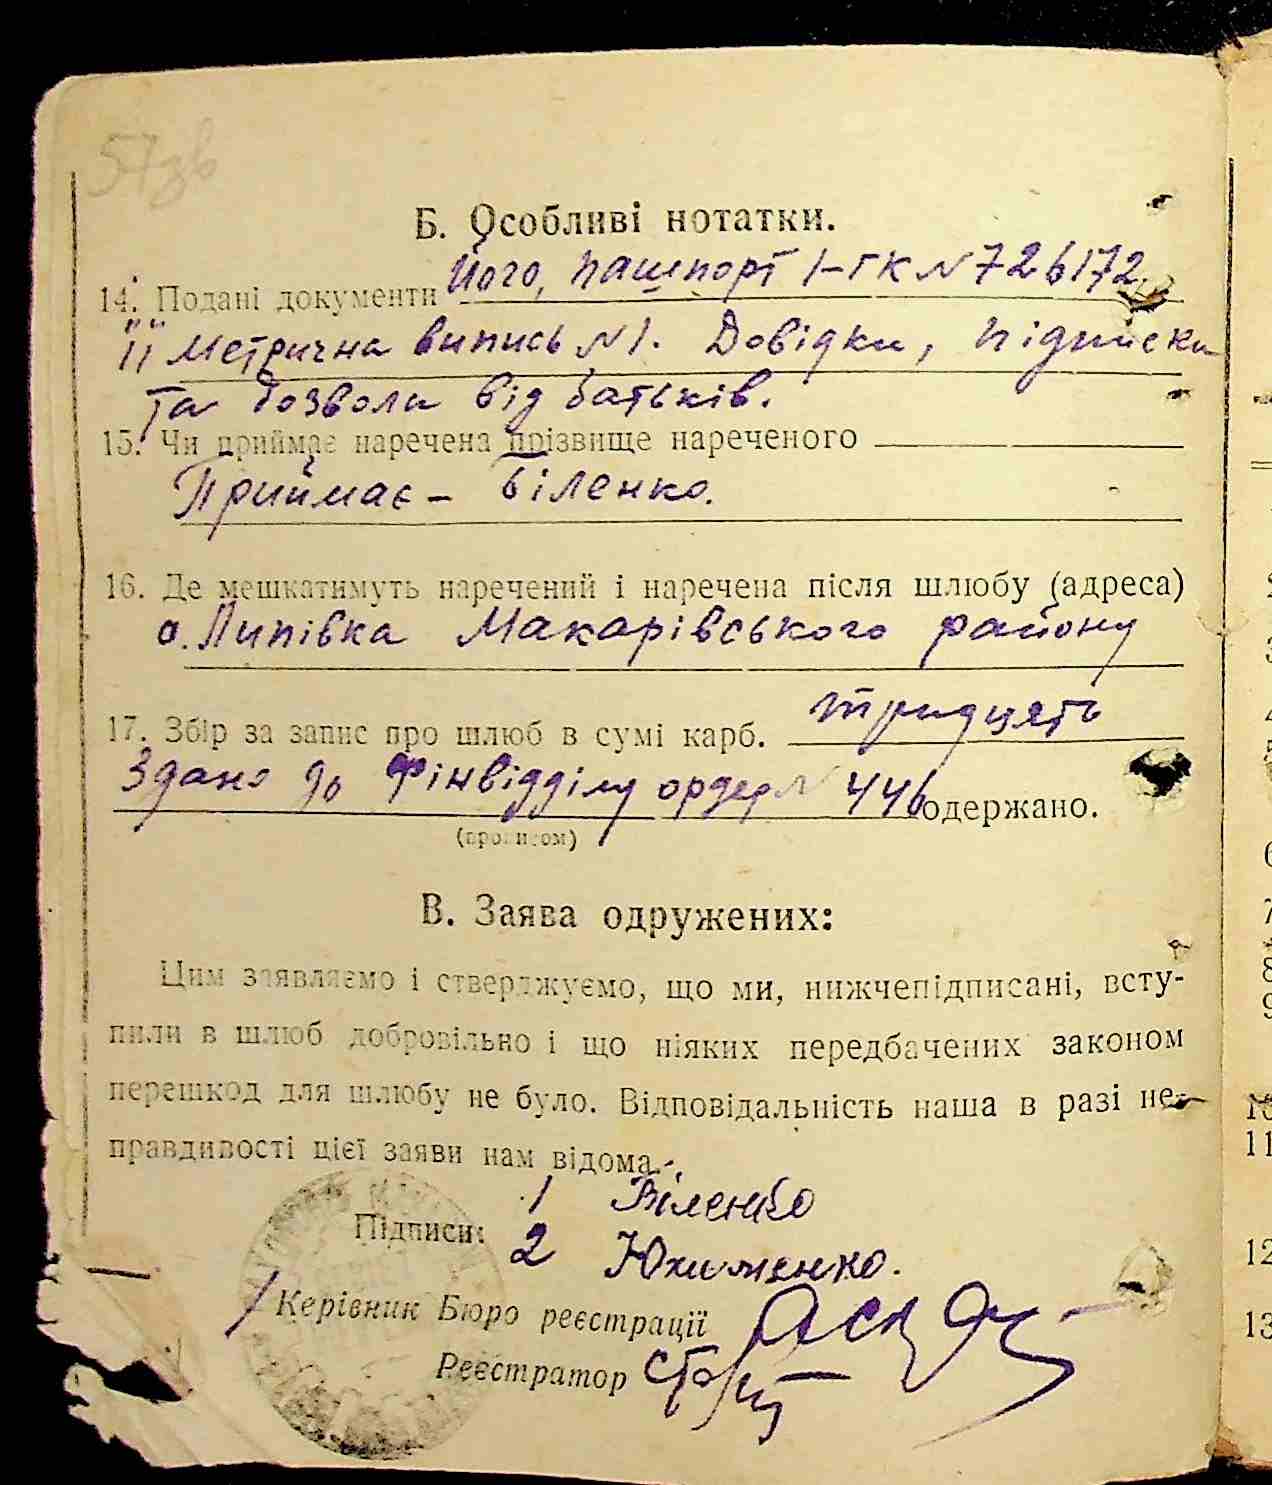 57зв
Б. Особливі нотатки.
14. Подані документи Його, пашпорт І-ГК N 726172
її метрична випись N1. Довідки, підписки
та дозволи від батьків.
15. Чи приймає наречена прізвище нареченого
Приймає – Біленко.
16. Де мешкатимуть наречений і наречена після шлюбу (адреса)
с. Липівка Макарівського району
17. Збір за запис про шлюб в сумі карб. тридцять
Здано до Фінвідділу ордер N 446 одержано.
(прописом)
В. Заява одружених:
Цим заявляємо і стверджуємо, що ми, нижчепідписані, всту-
пили в шлюб добровільно і що ніяких передбачених законом
перешкод для шлюбу не було. Відповідальність наша в разі не-
правдивості цієї заяви нам відома.
1 Біленко
Підписи:
2 Юхименко.
Керівник Бюро реєстрації
Реєстратор